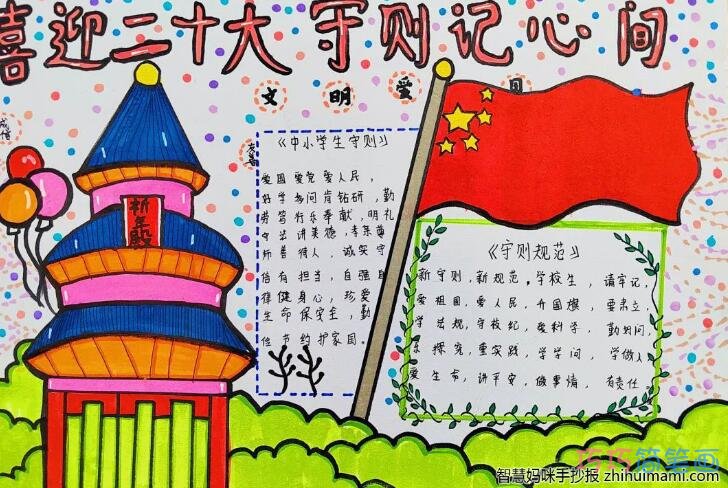 喜迎二十大 守则记心间
文 明 爱
诚信
友善
祈年殿
《中小学生守则》
爱国爱党爱人民，
好学多问肯钻研，勤
劳笃行乐奉献，明礼
守法讲美德，孝亲尊
师善待人，诚实守
信有担当，自强自
律健身心，珍爱
生命保安全，勤
俭节约护家园。
《守则规范》
新守则，新规范。学校生，请牢记，
爱祖国，爱人民，升国旗，要肃立，
学法规，守校纪，爱科学，勤、问，
乐探究，重实践，学学问，学做人
爱生命，讲平安，做事情，有责任
巧巧简笔画
智慧妈咪手抄报 zhihuimami.com